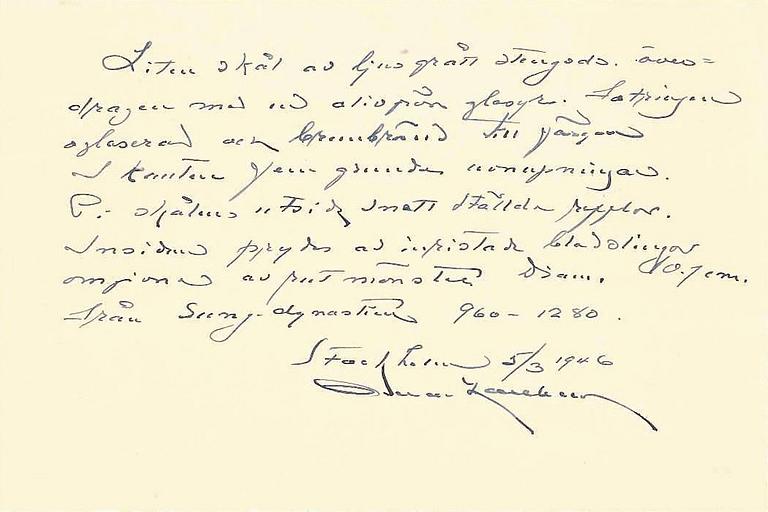 Liten skål av ljusgrått stengods. över=
dragen med en olivgrön glasyr. Fotringen
oglaserad och brunbränd till färgen
I kanten fem grunda urnupningar.
P.- skålens utsida snett ställda refflor.
Insidan prydes av inristade bladslingor
omgivna av rutmönster Diam. 10.7 cm.
från Sung-dynastien 960-1280.
Stockholm 5/3 1946